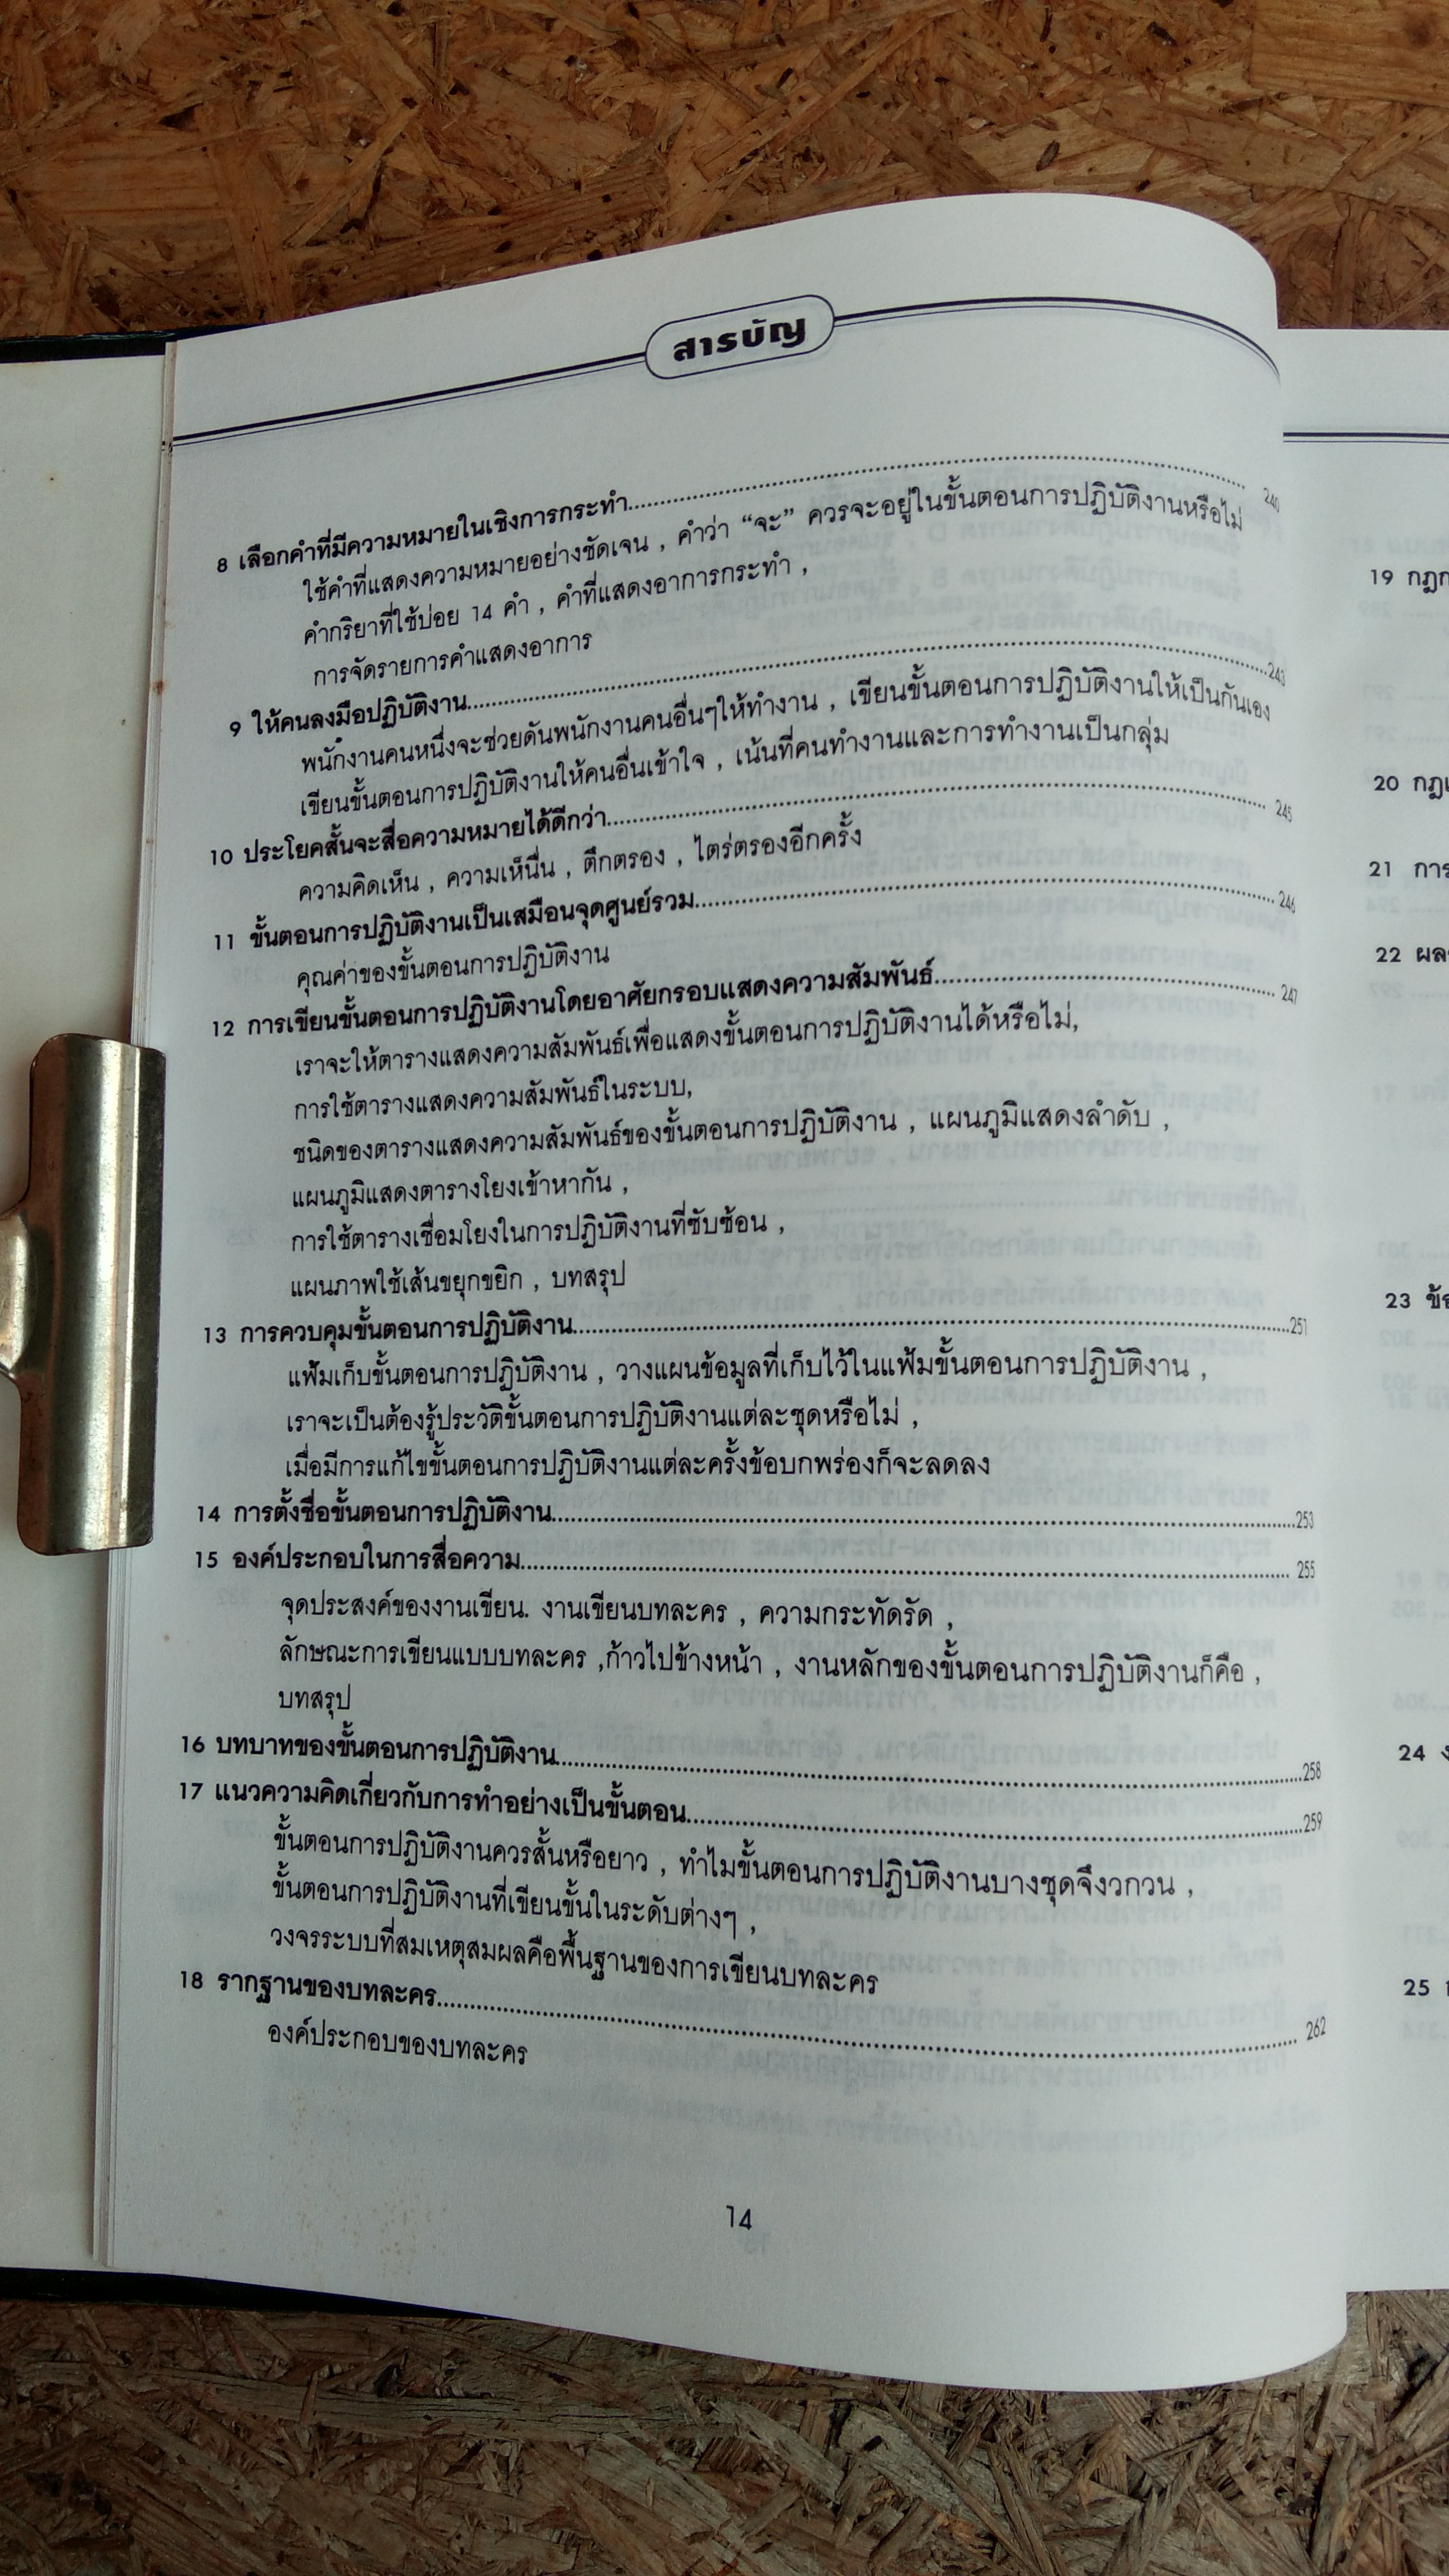 สารบัญ
8 เลือกคำที่มีความหมายในเชิงการกระทำ........................ 240
ใช้คำที่แสดงความหมายอย่างชัดเจน , คำว่า “จะ” ควรจะอยู่ในขั้นตอนการปฏิบัติงานหรือไม่
คำกริยาที่ใช้บ่อย 14 คำ , คำที่แสดงอาการกระทำ ,
การจัดรายการคำแสดงอาการ
9 ให้คนลงมือปฏิบัติงาน........................243
พนักงานคนหนึ่งจะช่วยดันพนักงานคนอื่นๆให้ทำงาน , เขียนขั้นตอนการปฏิบัติงานให้เป็นกันเอง
เขียนขั้นตอนการปฏิบัติงานให้คนอื่นเข้าใจ , เน้นที่คนทำงานและการทำงานเป็นกลุ่ม
10 ประโยคสั้นจะสื่อความหมายได้ดีกว่า........................ 245
ความคิดเห็น , ความเห็นื่น , ตึกตรอง , ไตร่ตรองอีกครั้ง
11 ขั้นตอนการปฏิบัติงานเป็นเสมือนจุดศูนย์รวม........................ 246
คุณค่าของขั้นตอนการปฏิบัติงาน
12 การเขียนขั้นตอนการปฏิบัติงานโดยอาศัยกรอบแสดงความสัมพันธ์........................ 247
เราจะให้ตารางแสดงความสัมพันธ์เพื่อแสดงขั้นตอนการปฏิบัติงานได้หรือไม่,
การใช้ตารางแสดงความสัมพันธ์ในระบบ,
ชนิดของตารางแสดงความสัมพันธ์ของขั้นตอนการปฏิบัติงาน , แผนภูมิแสดงลำดับ ,
แผนภูมิแสดงตารางโยงเข้าหากัน ,
การใช้ตารางเชื่อมโยงในการปฏิบัติงานที่ซับซ้อน ,
แผนภาพใช้เส้นขยุกขยิก , บทสรุป
13 การควบคุมขั้นตอนการปฏิบัติงาน........................251
แฟ้มเก็บขั้นตอนการปฏิบัติงาน , วางแผนข้อมูลที่เก็บไว้ในแฟ้มขั้นตอนการปฏิบัติงาน ,
เราจะเป็นต้องรู้ประวัติขั้นตอนการปฏิบัติงานแต่ละชุดหรือไม่ ,
เมื่อมีการแก้ไขขั้นตอนการปฏิบัติงานแต่ละครั้งข้อบกพร่องก็จะลดลง
14 การตั้งชื่อขั้นตอนการปฏิบัติงาน........................253
15 องค์ประกอบในการสื่อความ........................ 255
จุดประสงค์ของงานเขียน. งานเขียนบทละคร , ความกระทัดรัด ,
ลักษณะการเขียนแบบบทละคร ,ก้าวไปข้างหน้า , งานหลักของขั้นตอนการปฏิบัติงานก็คือ ,
บทสรุป
16 บทบาทของขั้นตอนการปฏิบัติงาน........................258
17 แนวความคิดเกี่ยวกับการทำอย่างเป็นขั้นตอน........................259
ขั้นตอนการปฏิบัติงานควรสั้นหรือยาว , ทำไมขั้นตอนการปฏิบัติงานบางชุดจึงวกวน ,
ขั้นตอนการปฏิบัติงานที่เขียนขั้นในระดับต่างๆ ,
วงจรระบบที่สมเหตุสมผลคือพื้นฐานของการเขียนบทละคร
18 รากฐานของบทละคร........................ 262
องค์ประกอบของบทละคร
14
19
20
21 การ
22 ผล
23
24
25